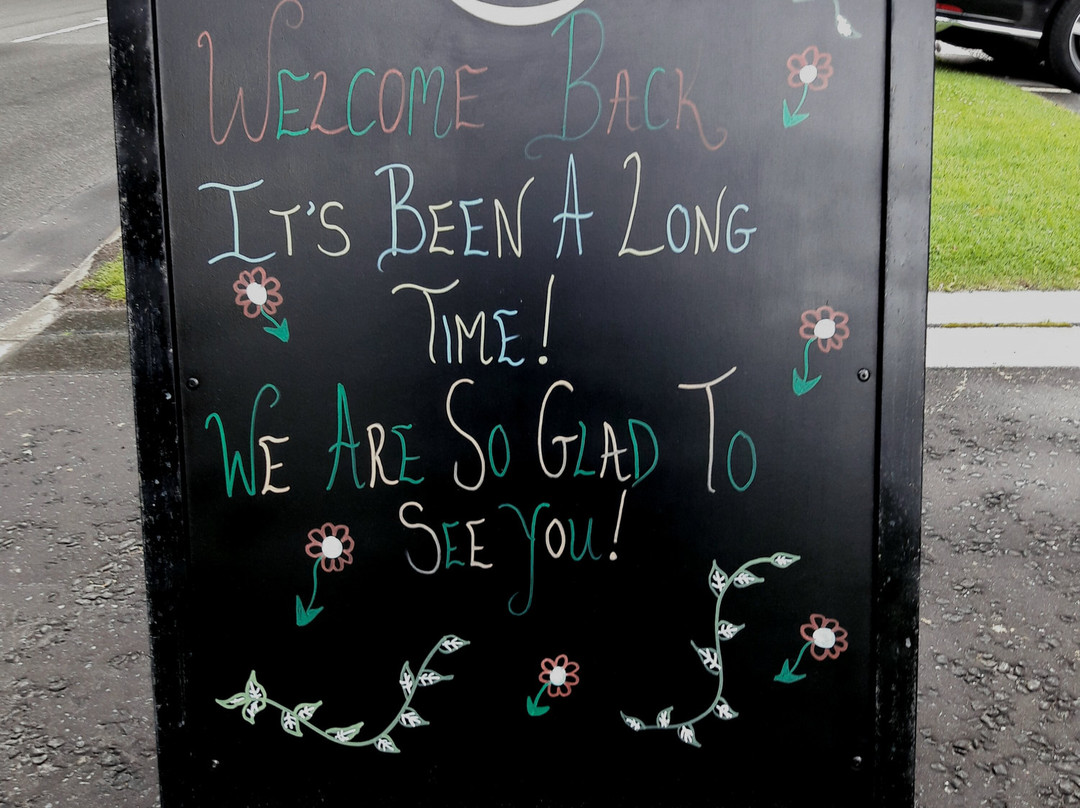 Welcome Back
It's Been A Long
Time!
We Are So Glad To
See You!